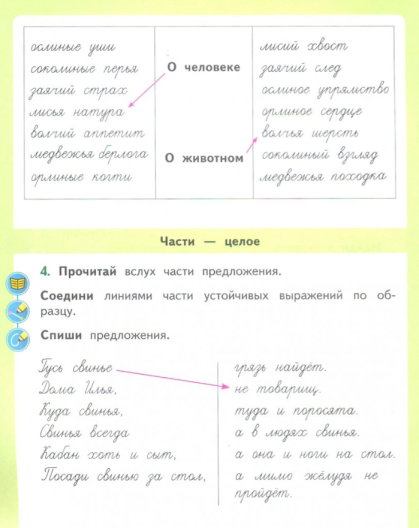 ослиные уши
соколиные перья
заячий страх
лисья натура
волчий аппетит
медвежья берлога
орлиные когти
О человеке
О животном
лисий хвост
заячий след
ослиное упрямство
орлиное сердце
волчья шерсть
соколиный взгляд
медвежья походка
Части — целое
4. Прочитай вслух части предложения.
Соедини линиями части устойчивых выражений по об-
разцу.
Спиши предложения.
Гусь свинье
Дома Илья,
Куда свинья,
Свинья всегда
Кабан хоть и сыт,
Посади свинью за стол,
грязь найдёт.
не товарищ.
туда и поросята.
а в людях свинья.
а она и ноги на стол.
а мимо жёлудя не
пройдёт.